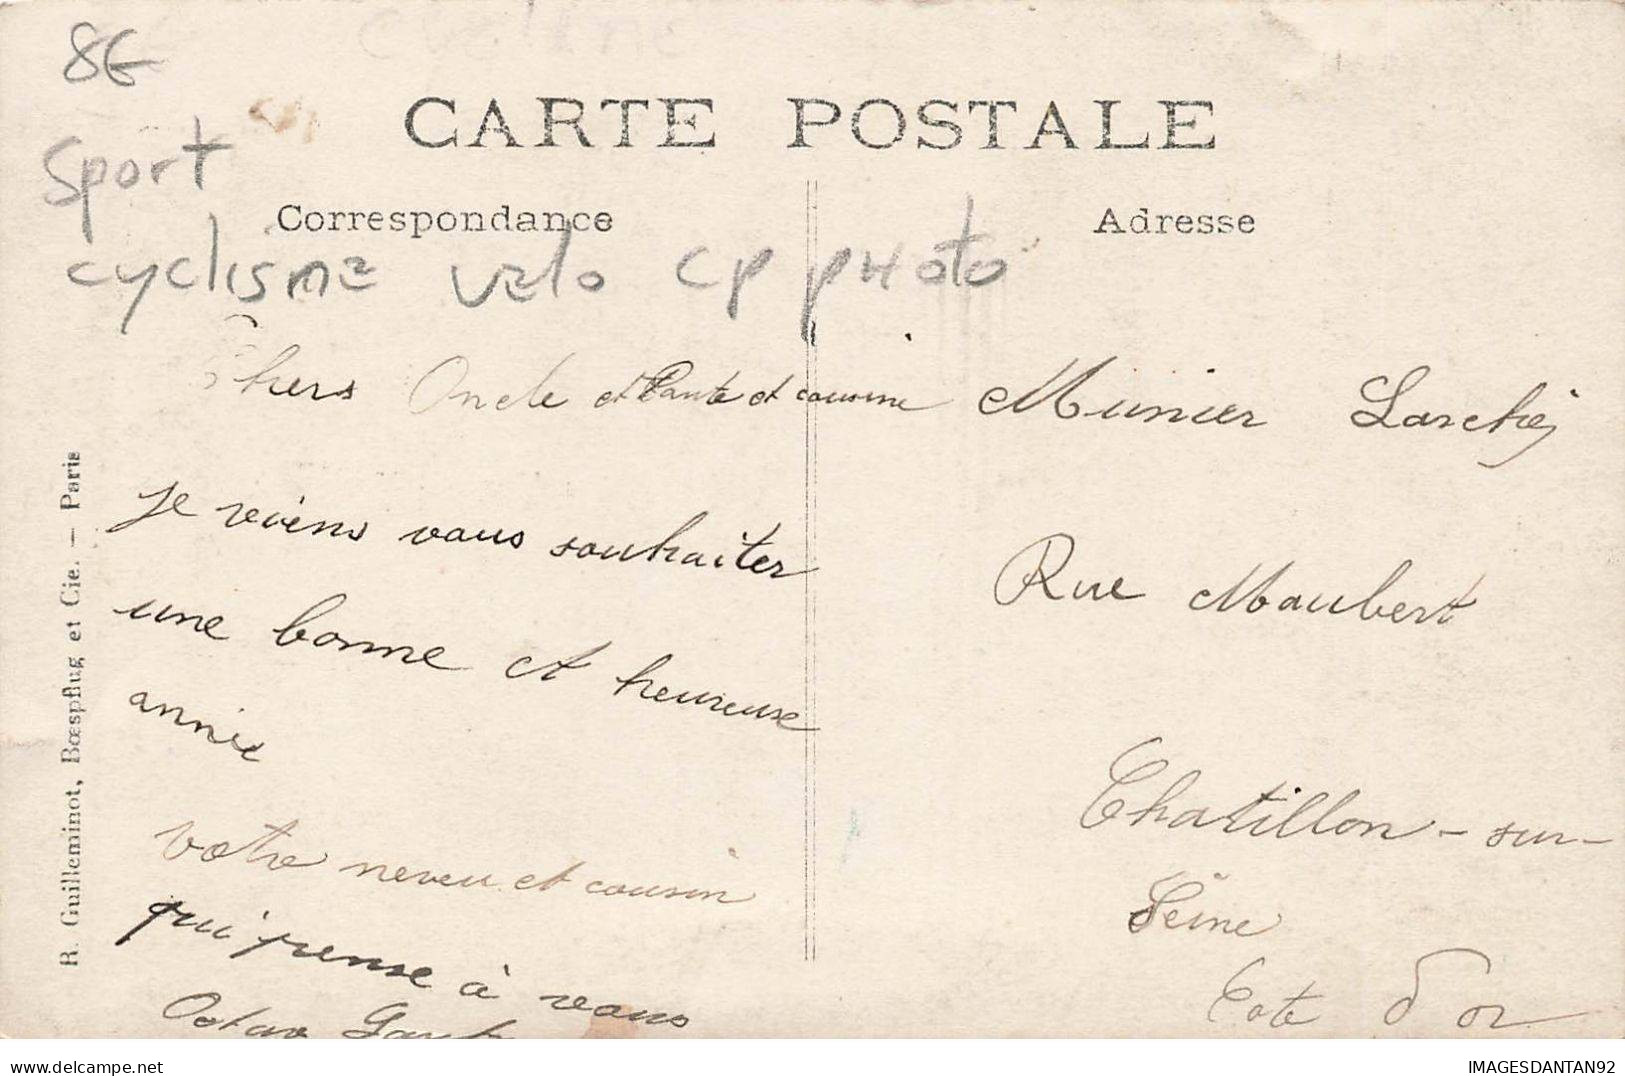 8€
CARTE POSTALE
sport
Correspondance
Adresse
cyclisme velo CP PHOTO
Chers Oncle et Tante et cousine
Je viens vous souhaiter
une bonne et heureuse
année
votre neveu et cousin
qui pense à vous
Octave
Munier
Rue Maubert
Chatillon-sur-
Seine
Cote d'or
R. Guilleminot, Bœspflug et Cie. — Paris
IMAGESDANTAN92
delcampe.net